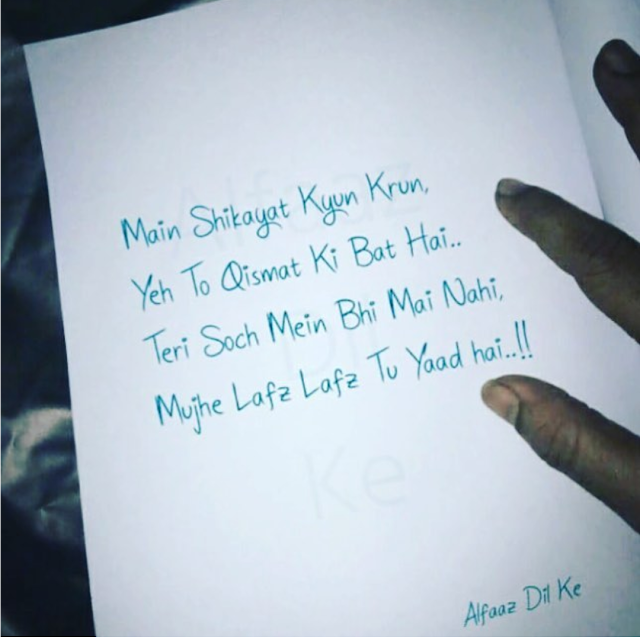 Main Shikayat Kyun Krun,
Yeh To Qismat Ki Bat Hai..
Teri Soch Mein Bhi Mai Nahi,
Mujhe Lafz Lafz Tu Yaad hai..!!
Alfaaz
Dil
Ke
Alfaaz Dil Ke